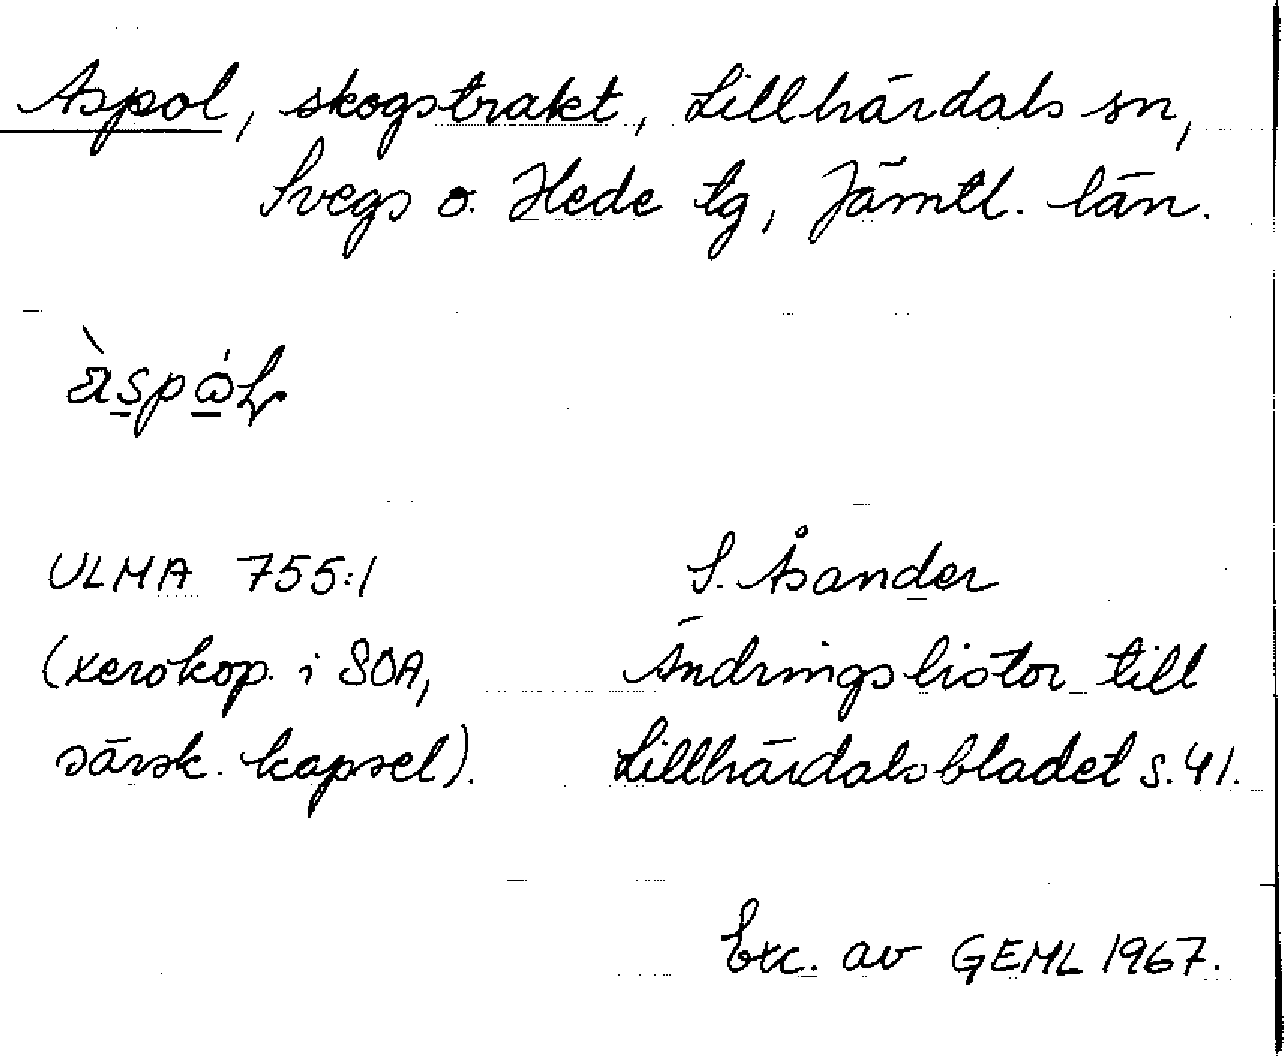 Aspol, skogstrakt, Lillhärdals sn,
Svegs o. Hede tg, Jämtl. län.
ULMA 755:1
(xerokop. i SOA,
särsk. kapsel).
S. Åsander
Ändringslistor till
Lillhärdalsbladet s. 41.
Exc. av GEML 1967.